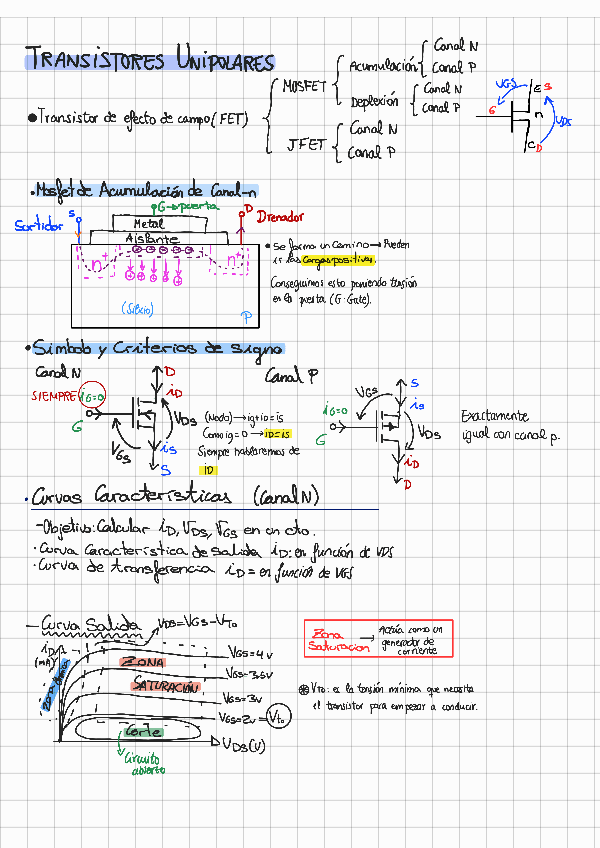 TRANSISTORES UNIPOLARES
• Transistor de efecto de campo (FET)
MOSFET
Acumulación
Canal N
Canal P
Deplexión
Canal N
Canal P
JFET
Canal N
Canal P
VGS
S
G
n
VDS
D
• Mosfet de Acumulación de Canal-n
Surtidor
S
G→puerta
D
Drenador
Metal
Aislante
n+
n+
(Silicio)
P
• Se forma un Camino → Pueden
ir las Cargas positivas.
Conseguimos esto poniendo tensión
en la puerta (G-Gate).
• Símbolo y Criterios de Signo
Canal N
SIEMPRE iG=0
G
D
iD
VDS
VGS
iS
S
(Nodo) → ig+iD=is
Como ig=0 → iD=is
Siempre hablaremos de
iD
Canal P
VGS
S
iS
iG=0
G
VDS
iD
D
Exactamente
igual con canal p.
• Curvas Características (Canal N)
-Objetivo: Calcular iD, VDS, VGS en un cto.
• Curva Característica de Salida iD: en función de VDS
• Curva de transferencia iD = en función de VGS
- Curva Salida
VDS=VGS-VTo
iD
(mA)
Zona óhmica
ZONA
SATURACIÓN
VGS=4v
VGS=3.5v
VGS=3v
VGS=2v = VTo
Corte
VDS(V)
Circuito
abierto
Zona
Saturación
→ Actúa como un
generador de
corriente
⊛ VTo: es la tensión mínima que necesita
el transistor para empezar a conducir.